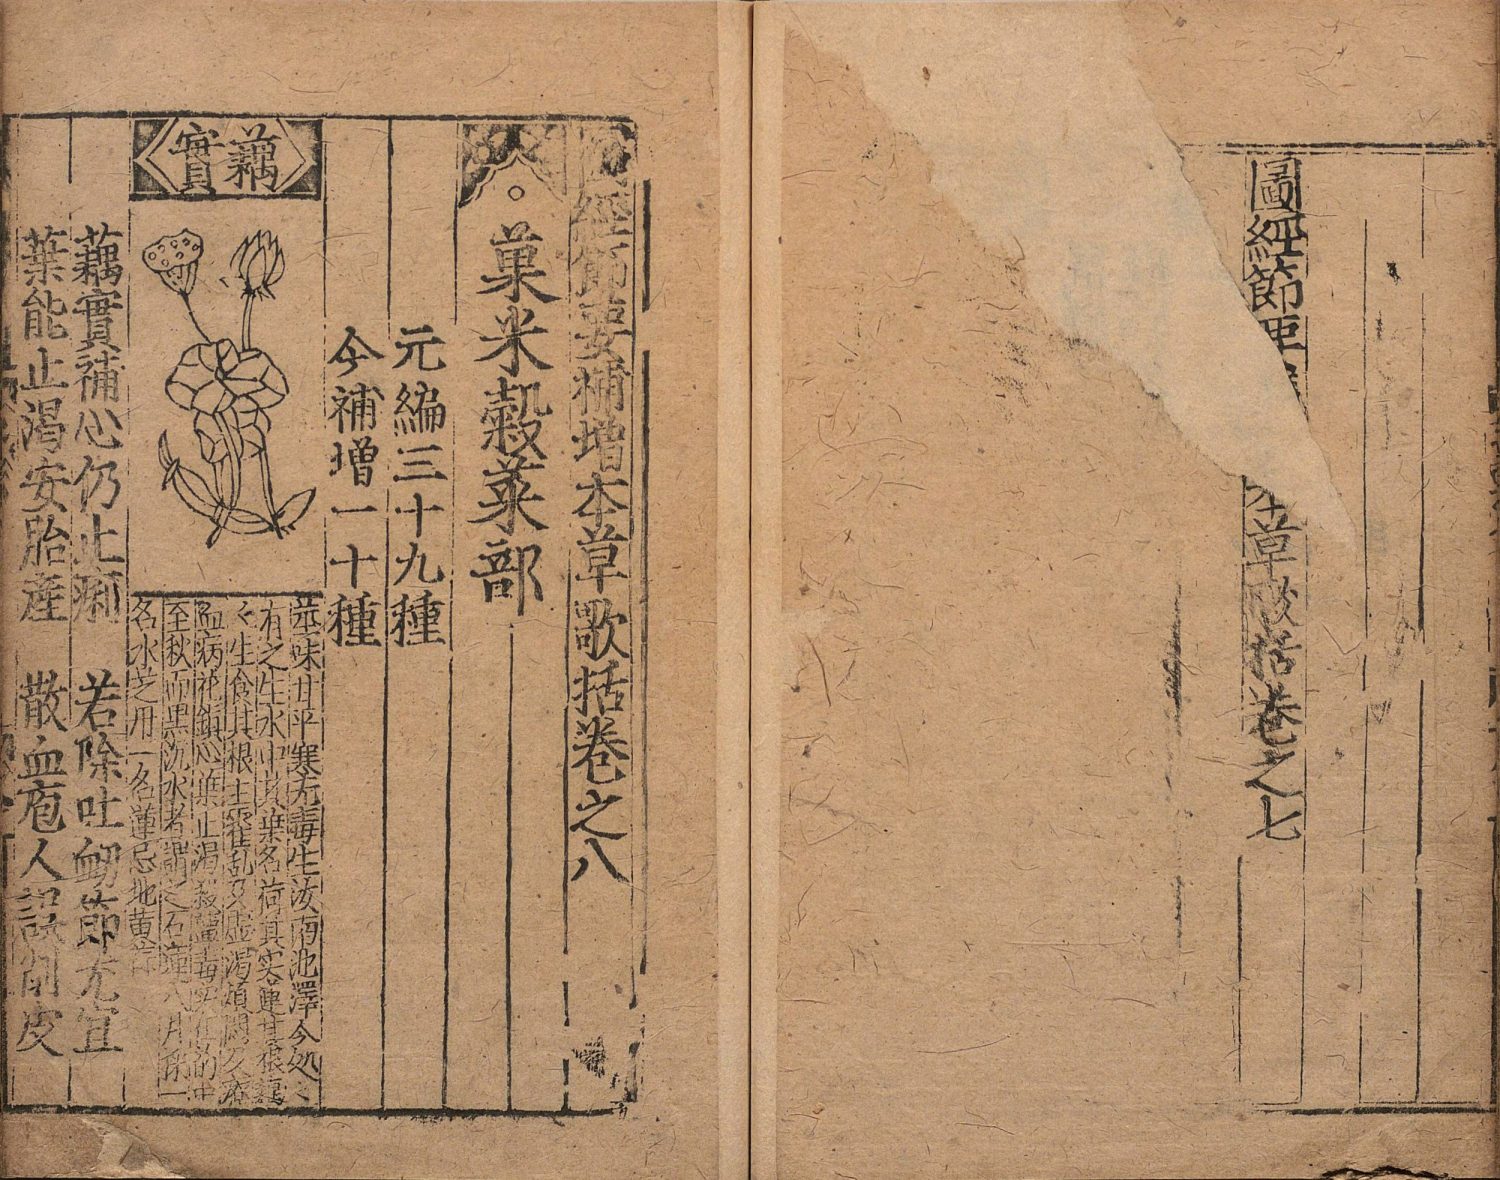 圖經節要
本草歌括卷之七
圖經節要補增本草歌括卷之八
菓米穀菜部
元編三十九種
今補增一十種
藕實
莖味甘平寒无毒生汝南池澤今処〻
有之生水中其葉名荷其实蓮其根藕
〻生食其根主霍乱及虚渴煩悶又
血病花鎮心葉止渴殺蕈毒
至秋而黒沉水者謂之石蓮八月採一
名水芝丹一名蓮忌地黄蒜
藕實補心仍止痢 若除吐衂節尤宜
葉能止渴安胎産 散血庖人誤削皮